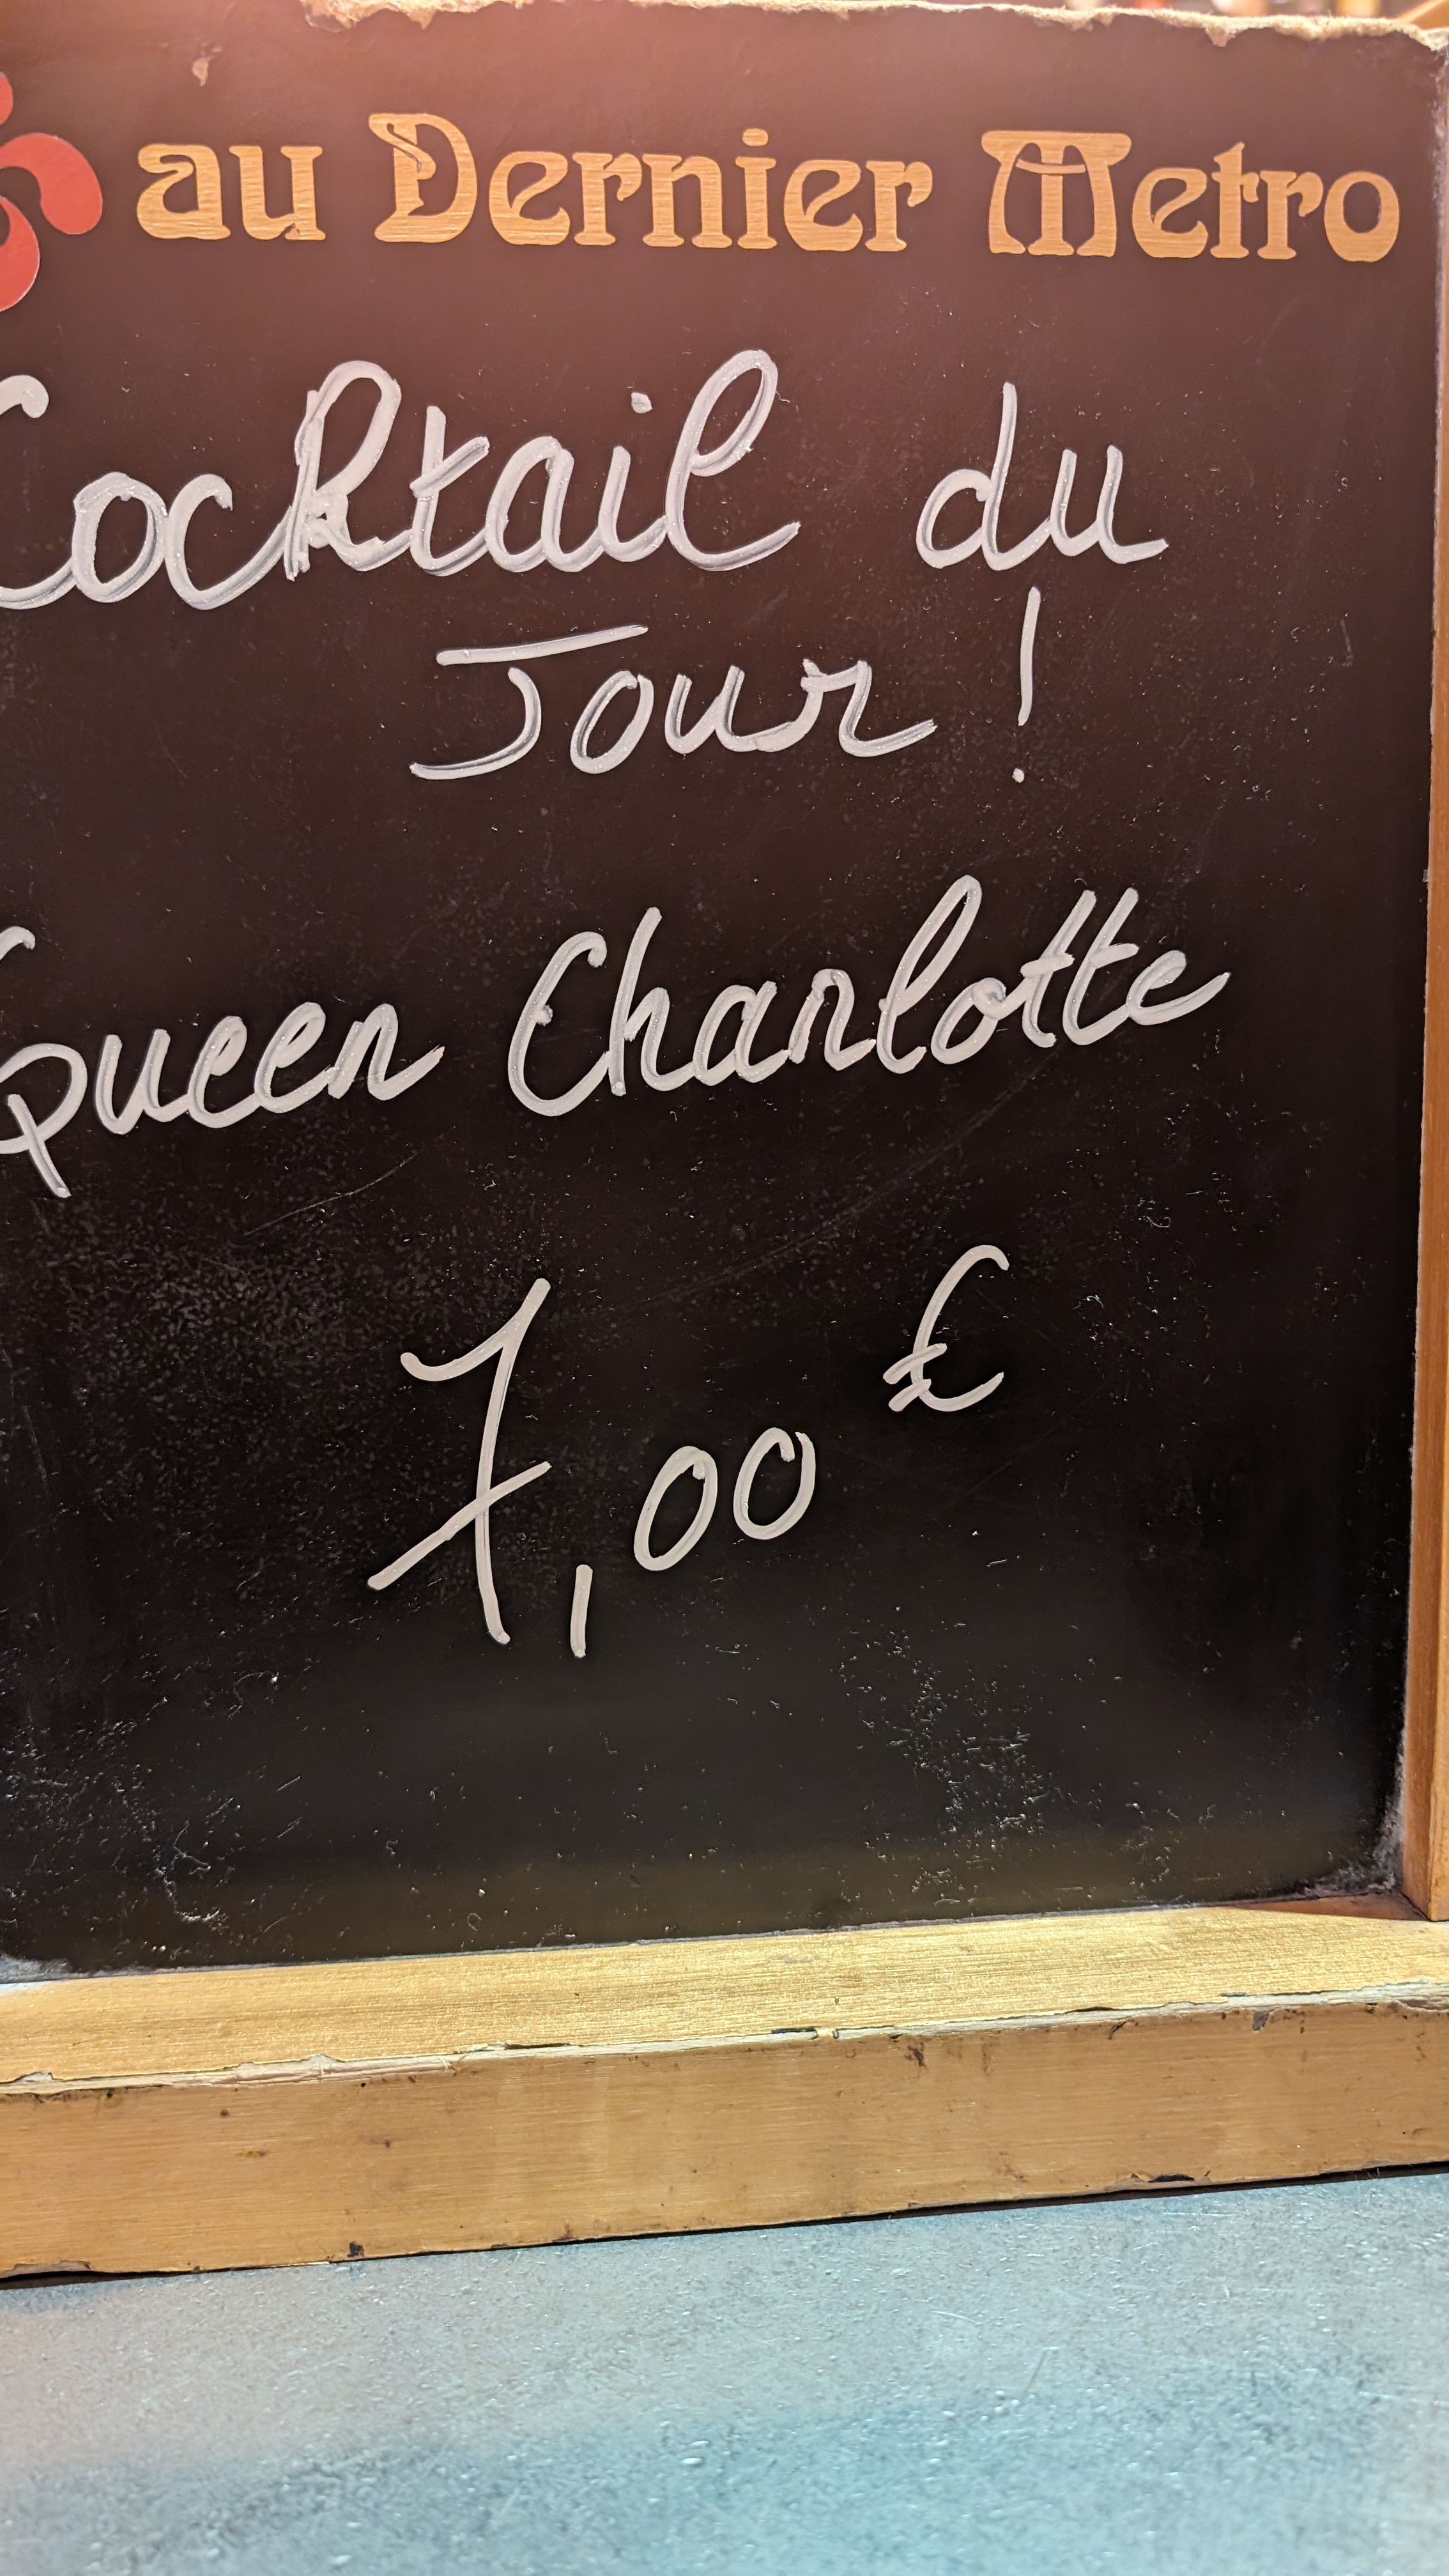 au Dernier Metro
Cocktail du
Jour !
Queen Charlotte
7,00 €